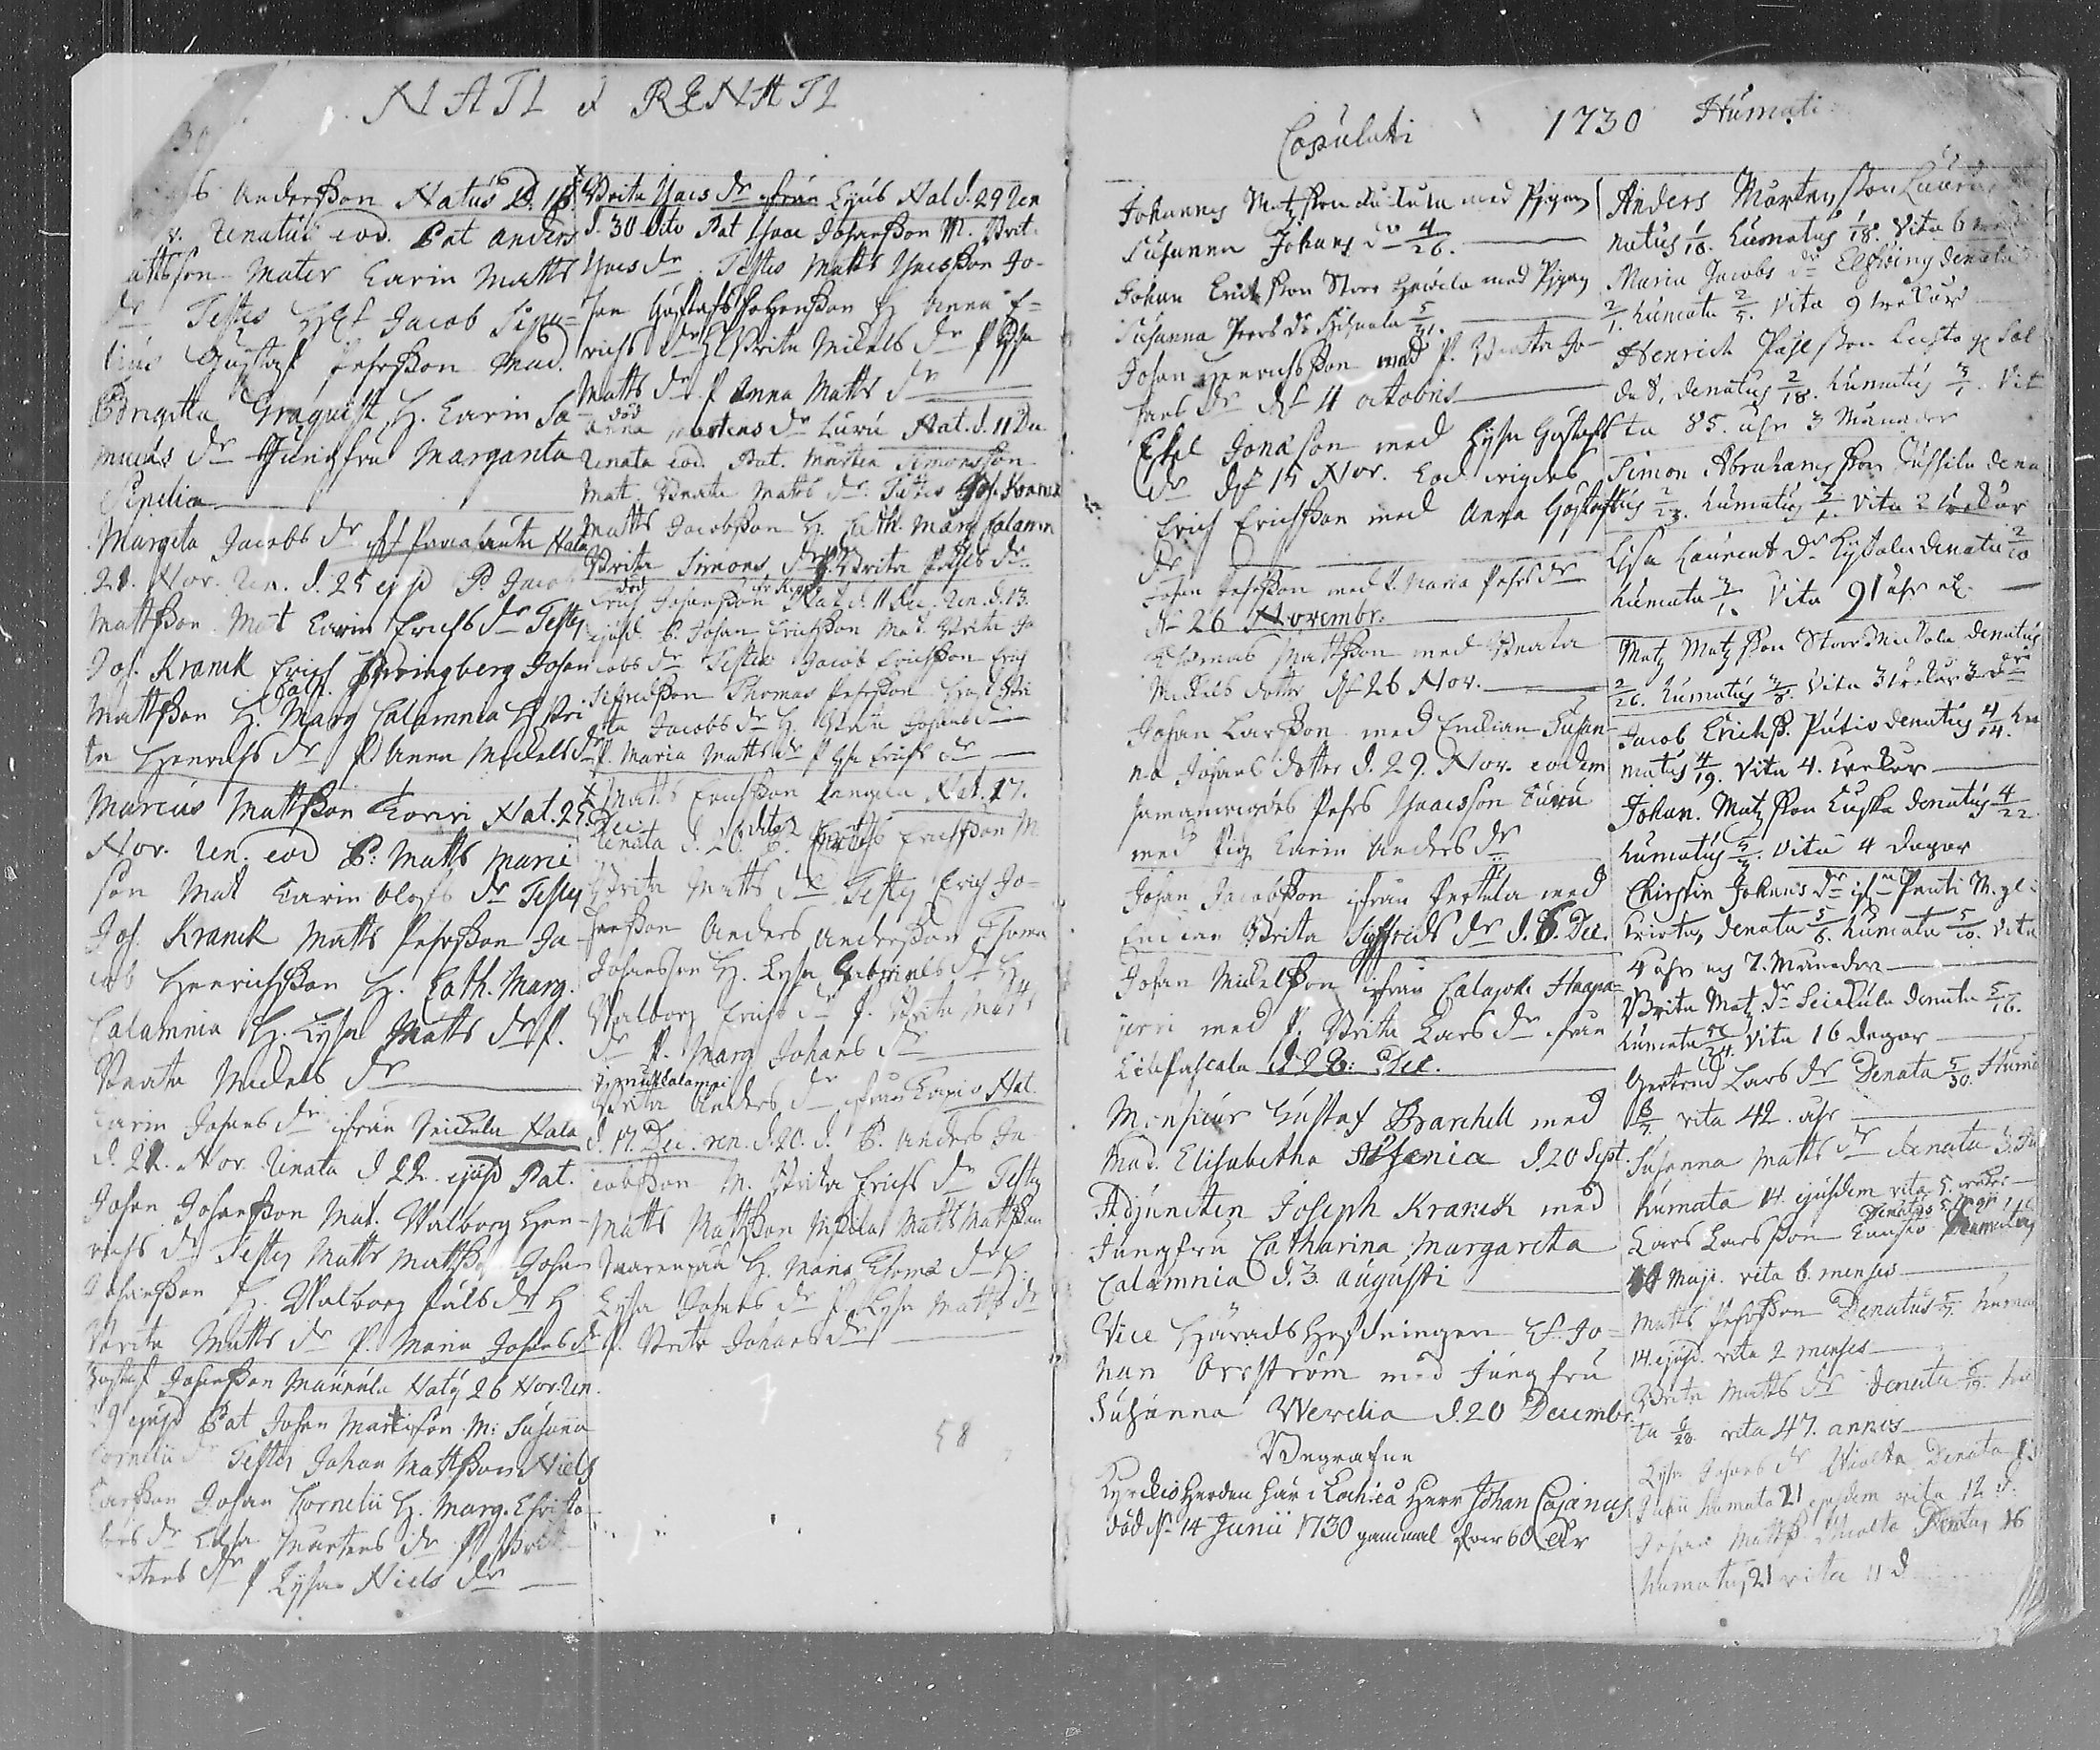 NATI & RENATI
Andersson Natus D. 18.
Renatus eod. Pat Anders
Mattsson Mater Carin Matts
dr Testes Jacob
Gustaf Pehrsson Mad.
Brigitta Graquist H. Carin Sa
muels dr Jungfru Margareta
Margeta Jacobs dr Nata
21. Nov. Ren. d. 25 ejusd P. Jacob
Mattsson Mat Carin Erichs dr Testes
Joh. Kranck Erich Springberg Johan
Mattsson H. Cath. Marg Calamnia H Bri
ta Henrichs dr P Anna Michels dr
Marcus Mattsson Korvi Nat. 25.
Nov. Ren. eod P: Matts Marci
son Mat Karin Olofs dr Testes
Joh. Kranck Matts Pehrsson Ja
cob Henrichsson H. Cath. Marg.
Calamnia H. Lysa Matts dr P.
Beata Michels dr
Carin Johans dr ifrån Nata
d. 21. Nov. Renata d 22. ejusd Pat.
Johan Johansson Mat. Walborg Hen-
richs dr Testes Matts Mattsson Johan
Johansson H. Walborg Påls dr H
Brita Matts dr P. Maria Johans dr
Gustaf Johansson Maunula Natus 26 Nov. Ren.
29 ejusd Pat Johan Martisson M: Susanna
Cornelii dr Testes Johan Mattsson Niels
Larsson Johan Cornelii H. Marg. Christo
fers dr Lysa Martens dr P Brita
Martens dr P Lysa Niels dr
Brita Isacs dr ifrån Nat d. 29 Ren
d. 30 dito Pat Isaac Johansson M. Brit.
Isacs dr Testes Matts Isacsson Jo-
han Gustafsson H Anna E-
richs dr H Brita Michels dr P Lysa
Matts dr P Anna Matts dr
död
Anna Martens dr Luru Nat. d. 11 Dec
Renata eod. Pat. Marten Simonsson
Mat. Beata Matts dr. Testes Joh. Kranck
Matts Jacobsson H. Cath. Marg Calamn
Brita Simons dr P. Brita Pehrs dr.
död
Erich Johansson Nat. d. 11 Dec. Ren. d. 13.
ejusd. P. Johan Erichsson Mat. Brita Ja
cobs dr Testes Jacob Erichsson Erich
Sigfredsson Thomas Pehrsson H. Bri
ta Jacobs dr H. Johans dr
P. Maria Matts dr P Lysa Erichs dr
Matts Erichsson Nat. 17.
Dec
Renata d. 20. dito P. Matts Erichsson M.
Brita Matts dr Testes Erich Jo-
hansson Anders Andersson Thoma
Johansson H. Lysa Gabriels dr H
Walborg Erichs dr P. Brita Matts
dr P. Marg Johans dr
Brita Anders dr ifrån Nat
d. 17. Dec. ren. d. 20. d. P. Anders Ja
cobsson M. Brita Erichs dr Testes
Matts Mattsson Matts Mattsson
H. Maria Thomæ dr H.
Lysa Johans dr P. Lysa Matts dr
P. Brita Johans dr
7
58
Copulati
1730
Humati
Johannes Matzson med Pigan
Susanna Johans dr 4/26.
Johan Erikson Stoor Hawila med Pigan
Susanna Peers dr 5/31.
Johan Henrichsson med P. Beata Jo-
hans dr d. 4 octobris
Eskel Jonæson med Lysa Gustafs
dr d. 15 Nov. Eod. wigdes
Erich Erichsson med Anna Gustafs
dr
Johan Pehrsson med P. Maria Pehrs dr
d. 26 Novembr.
Thomas Mattsson med Beata
Michels dotter d. 26 Nov.
Johan Larsson med Enckian Susan
na Johans dotter d. 29. Nov. eodem
sammanwigdes Pehr Isaacsson Luru
med Pig. Carin Anders dr
Johan Jacobsson ifrån med
Enckian Brita Sigfrids dr d. 6. Dec.
Johan Michelsson ifrån Calajoki Haapa-
jervi med P. Brita Lars dr ifrån
d 28: Dec.
Monsieur Gustaf Barchell med
Mad. Elisabetha Alsenia d. 20 Sept.
Adjuncten Joseph Kranck med
Jungfru Catharina Margareta
Calamnia d. 3. Augusti
Vice Häradshöfdningen H. Jo-
han Orrström med Jungfru
Susanna Werelia d. 20 Decembr.
Begrafne
Kyrckioherden här i Lochteå Herr Johan Cajanus
död d. 14 Junii 1730 gammal öfver 60 åhr
Anders Mårtensson
natus 1/10. humatus 1/18. Vita 6
Maria Jacobs dr Elfving denata
2/1. humata 2/5. Vita 9 weckor
Henrich Påhlsson Sol
dat, denatus 2/18. humatus 3/1. Vi
ta 85. åhr 3 Månader
Simon Abrahamsson Jussila dena
tus 2/23. humatus 3/1. vita 2 weckor
Lysa Laurent dr denata 2/20
humata 3/1. Vita 91 åhr
Matz Matzson Stoor Mickola denatus
2/26. humatus 3/8. Vita 3 weckor 3
Jacob Erichs. denatus 4/14. hu
matus 4/19. Vita 4. weckor
Johan. Matzson denatus 4/22
humatus 5/3. Vita 4 dagar
Chirstin Johans dr
denata 5/6. humata 5/10. Vita
4 åhr og 7. Månader
Brita Matz dr denata 5/16.
humata 5/24. Vita 16 dagar
Gertrud Lars dr Denata 5/30. Huma
6/7. vita 42. åhr
Susanna Matts dr denata 3. Ju
humata 14. ejusdem vita 5. weker
Denatus 5 Maji
Lars Larsson humatus
10 Maji. vita 6. menses
Matts Pehrsson Denatus 5/7. huma
14. ejusd. vita 2 menses
Brita Matts dr denata 6/19. hu
ta 6/28. vita 47. annos
Lysa Johans dr Denata
Junii humata 21 ejusdem vita 12 d.
Johan Matts Denatus 16
humatus 21 vita 11 d